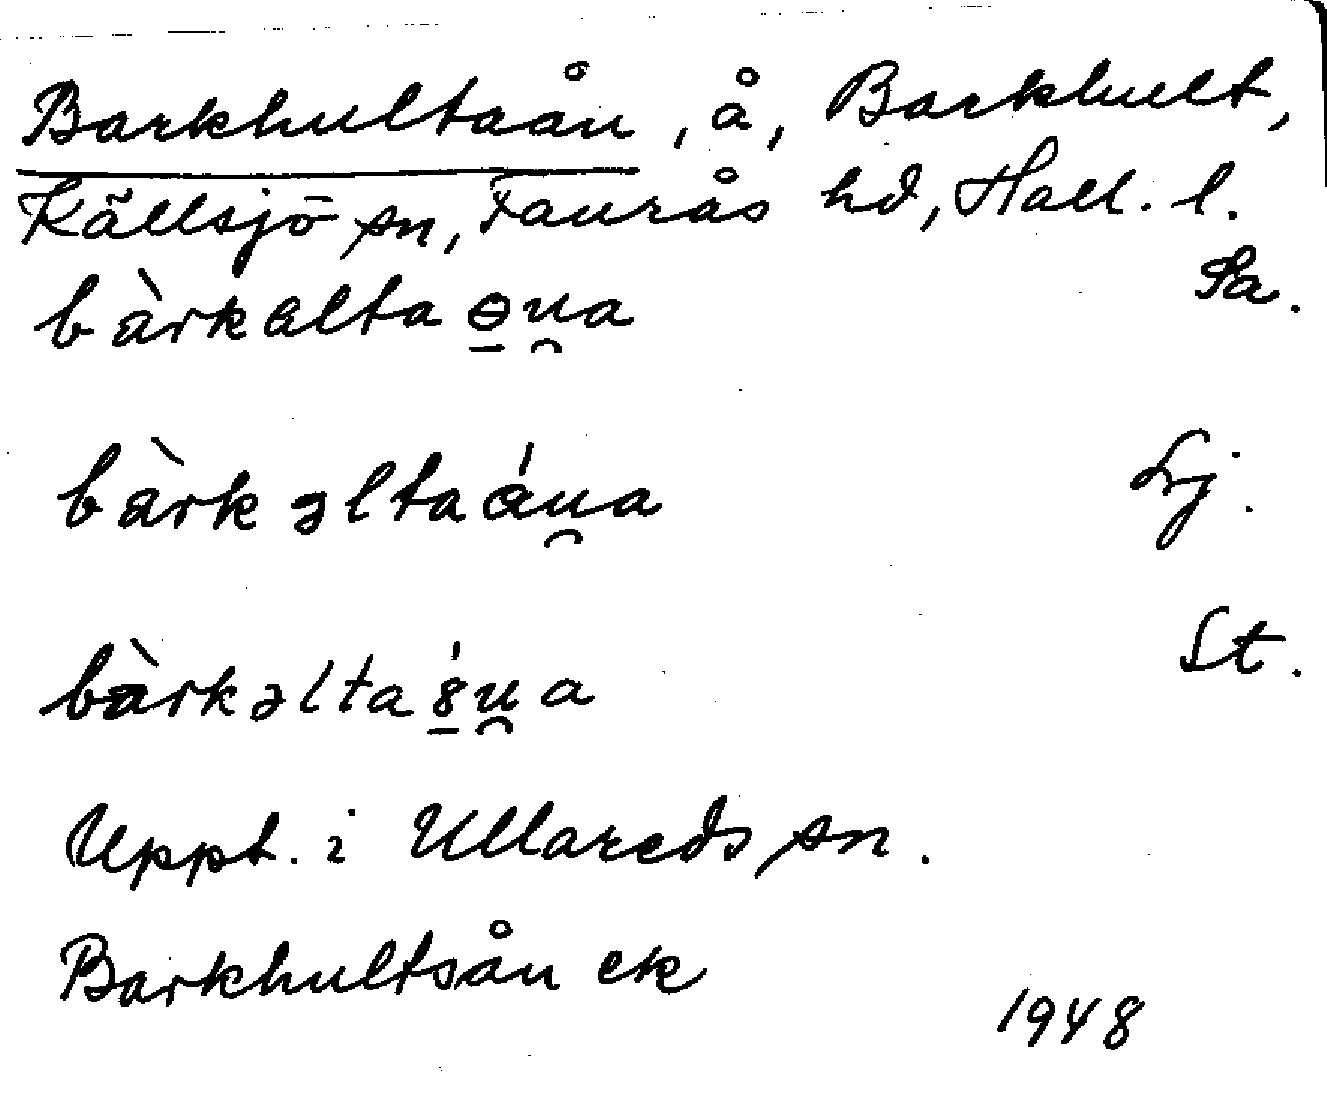 Barkhultaån, å, Barkhult,
Källsjö sn, Faurås hd, Hall. l.
bàrkɐlta ɵ̱u̯a Sa.
bàrkəltaáu̯a Lj.
bàrkəlta 8̱́u̯a St.
Uppt. i Ullareds sn.
Barkhultsån ek
1948